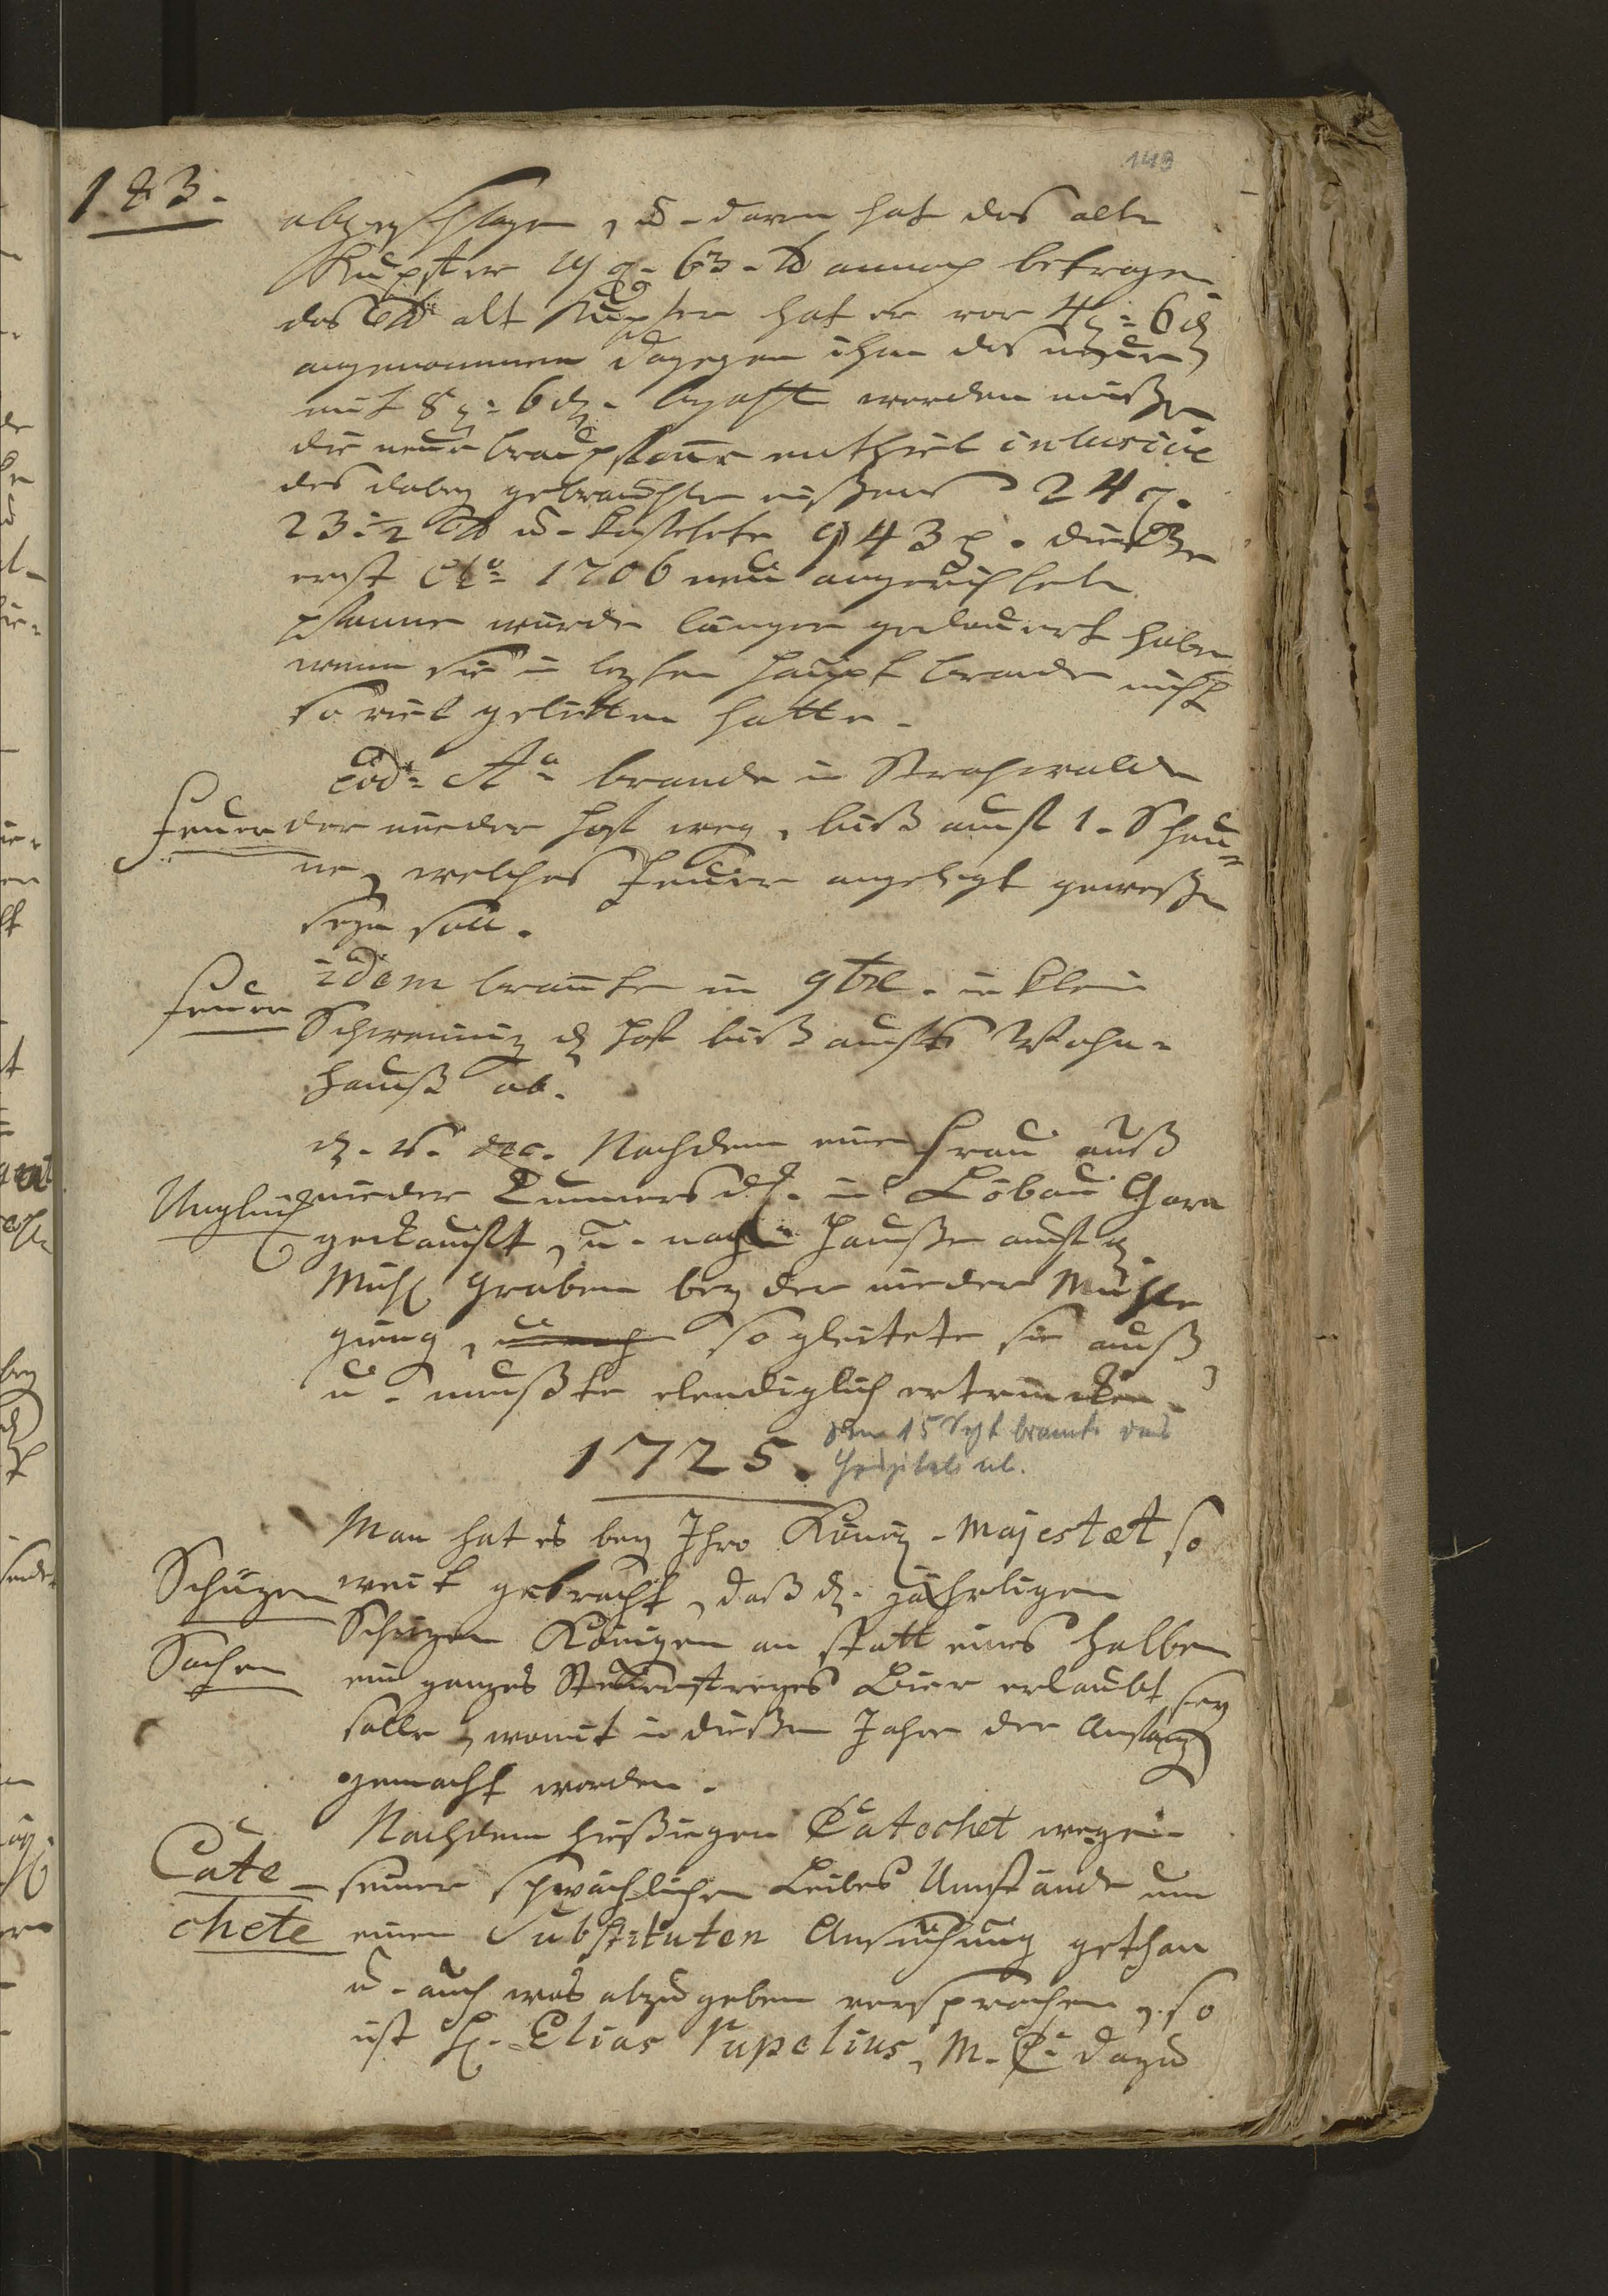 183.
149
abgeschlagen, u. daran hat das alte
Kupffer 14 C. 63. ℔ annoch betragen
das ℔ alt Kupfer hat er vor 4 g. 6 ₰
angenommen dagegen ihm das neue
mit 8 g. 6 ₰. bezahlt werden müßen
die neue Brau pfanne enthielt inlusive
des dabey gebrauchten eißens 24 C.
23 ½ ℔ u. kostete 943 r. dieße
erst Ao. 1706 neu angerichtete
pfanne würde länger gedauert haben
wenn sie in lezten Haupt brande nicht
so viel gelitten hatte.
Eod. Ao. brande in Strohwalde
Feuer
der nieder Hoff weg, biß auff 1. Scheu=
ne, welches Feuer angelegt geweßen
seyn soll.
Feuer
idem brannte in 9bre. in klein
Schweiniz d. Hoff biß auffs Wohn-
hauß ab.
d. 16. dec. Nachdem eine Frau auß
Unglück
nieder Cunnersdf. in Löbau Garn
gekaufft, u. nach Hauße auff d.
Mühl graben bey der nieder Mühle
gieng, so gleitete sie auß
u. mußte elendiglich ertrincken.
1725.
den 15 Sept brannte das
Hospital ab.
Man hat es bey Ihro König. Majestæt so
Schüzen
Sachen
weit gebracht, daß d. jährligen
Schüzen Königen an statt eines halben
ein ganzes Steuerfreyes Bier erlaubt sey
solle, womit in dießem Jahre der Anfang
gemacht worden.
Nachdem hießiegen Catechet wegen
Cate-
chete
seiner schwächlichen Leibes Umstände um
einen Substituten Ansuchung gethan
u. auch was abzugeben versprochen, so
ist H. Elias Pupelius, M. C. dazu